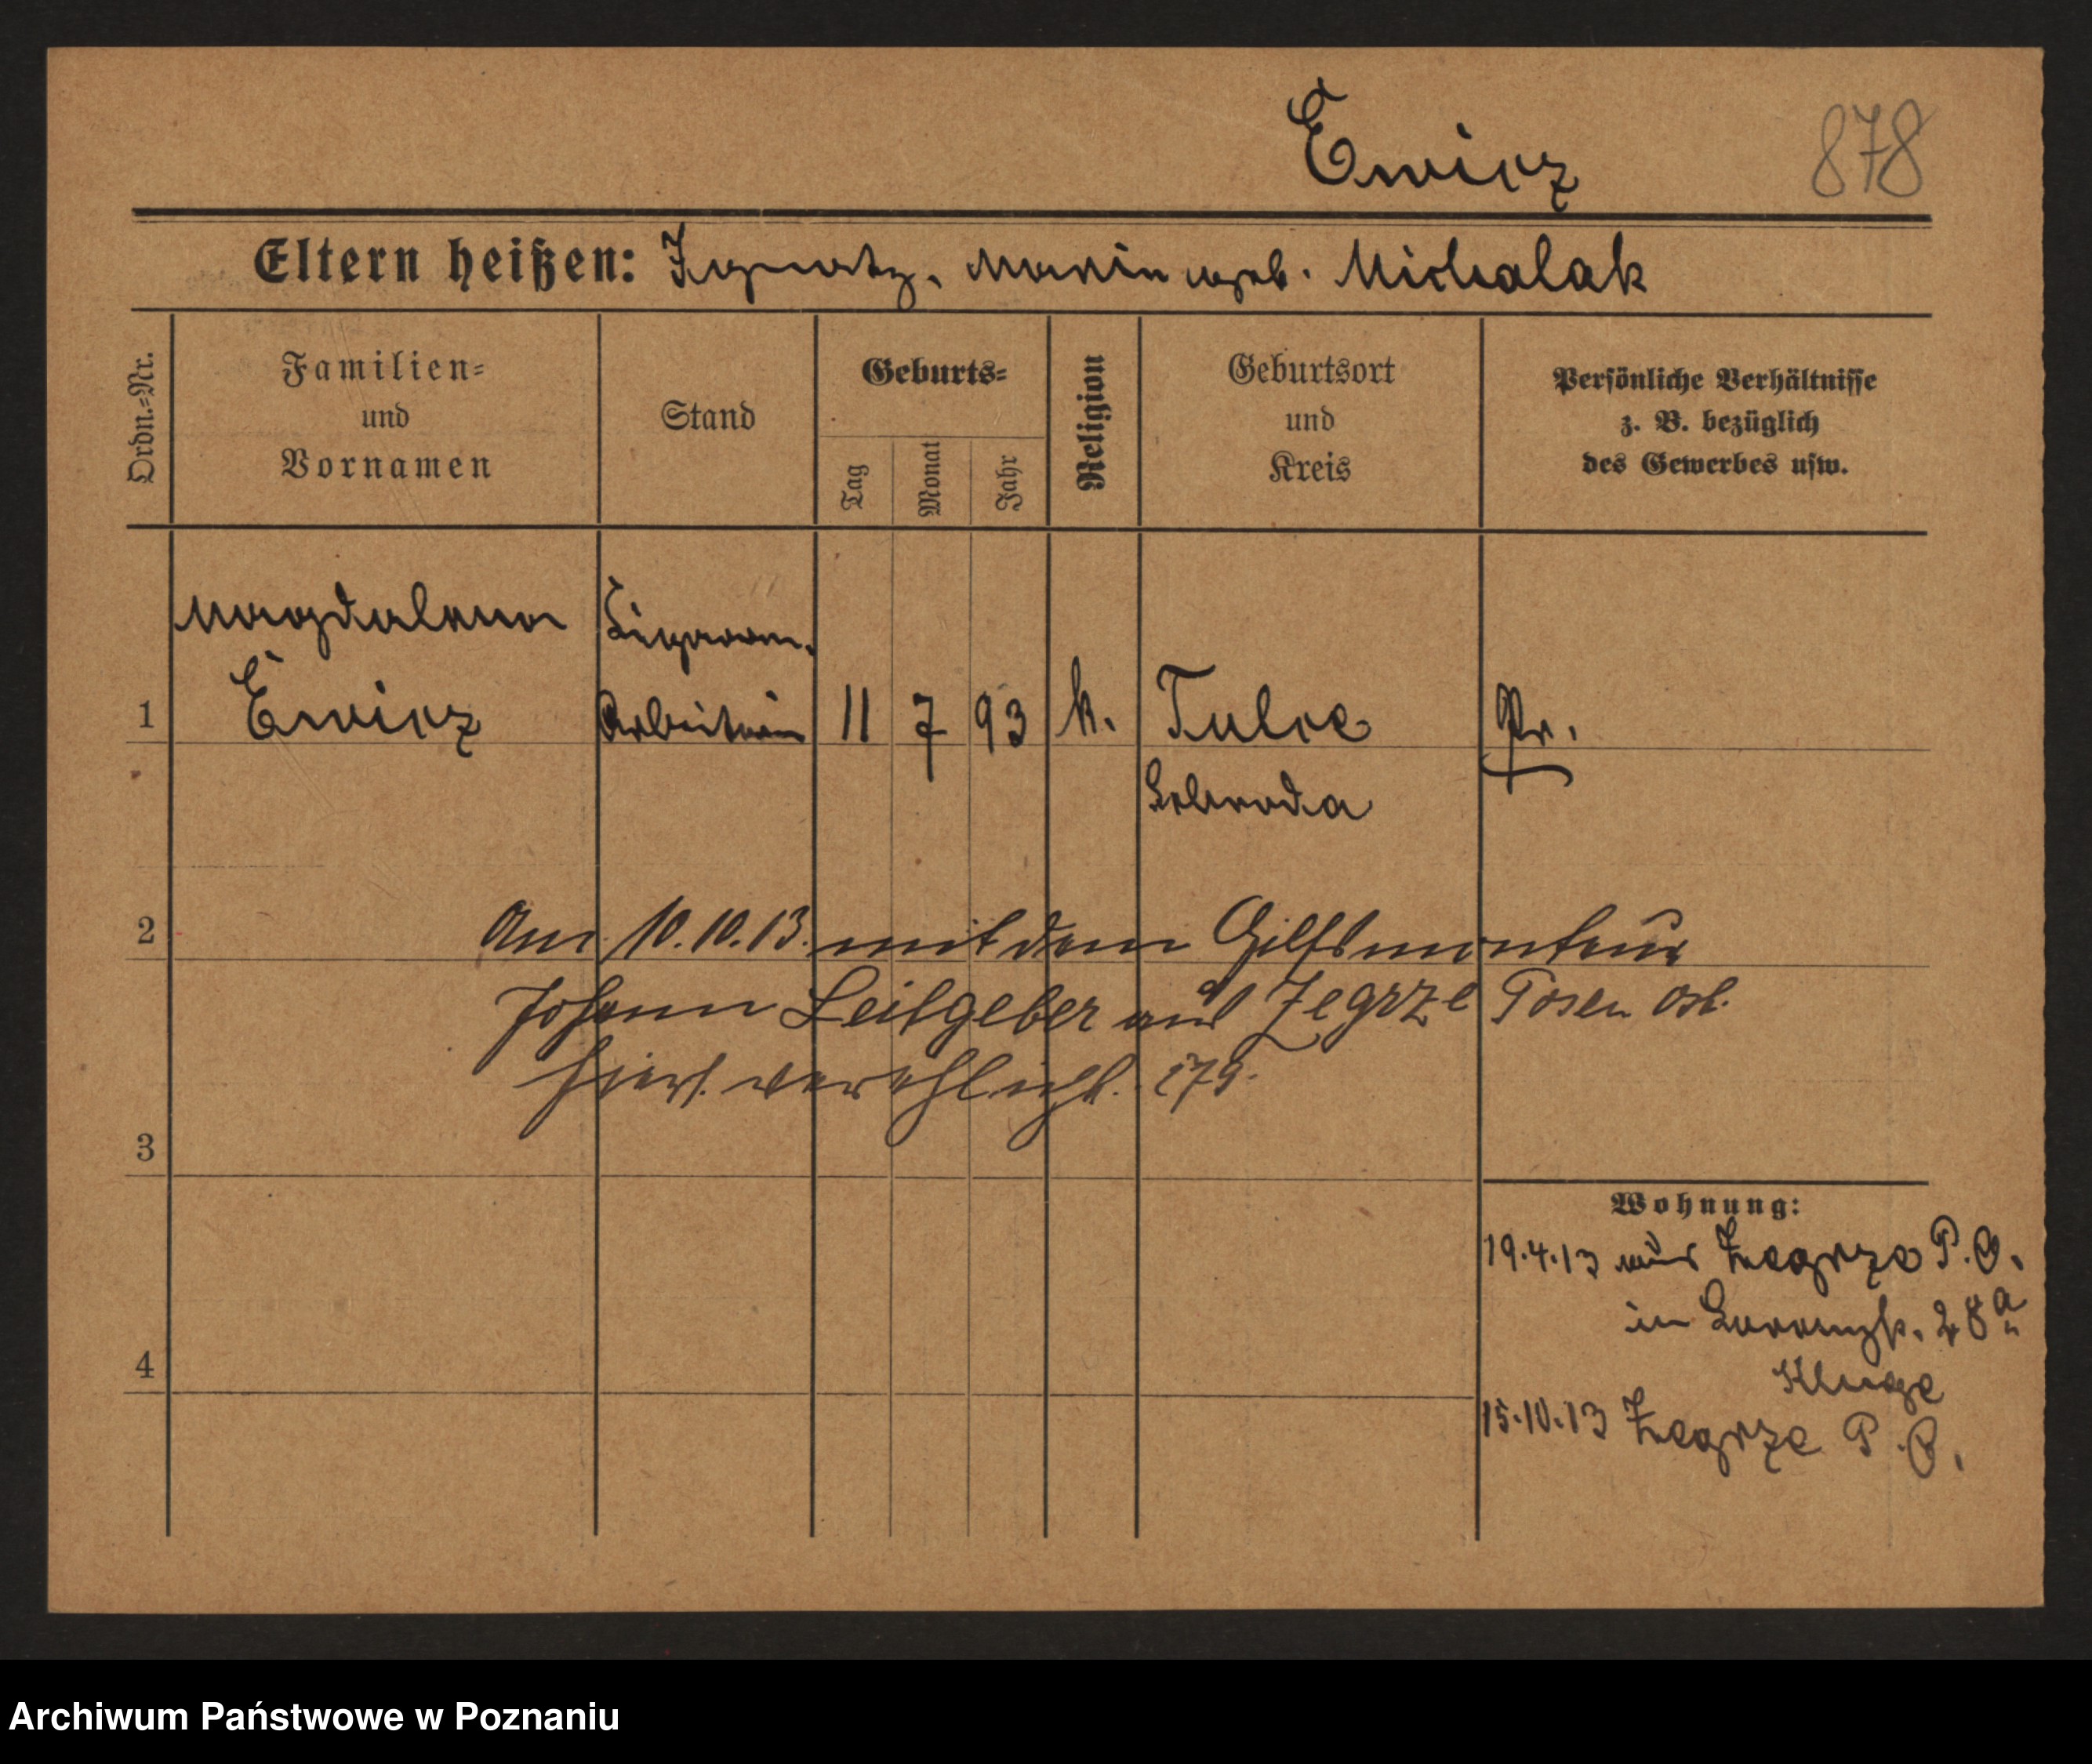 Ewicz
878
Eltern heißen: Ignatz, Maria geb. Michalak
Ordn.-Nr.
Familien-
und
Vornamen
Stand
Geburts-
Tag
Monat
Jahr
Religion
Geburtsort
und
Kreis
Persönliche Verhältnisse
z. B. bezüglich
des Gewerbes usw.
Magdalena Zigarren.
1 Ewicz Arbeiterin 11 7 93 k. Tulce Pr.
Schroda
2 Am 10.10.13. mit dem Hilfsmonteur
Johann Leitgeber aus Zegrze Posen Ost.
hiers. verehlicht. 179.
3
Wohnung:
19.4.13 aus Zegrze P. O.
in 28a
Kluge
4
15.10.13 Zegrze P. O.
Archiwum Państwowe w Poznaniu